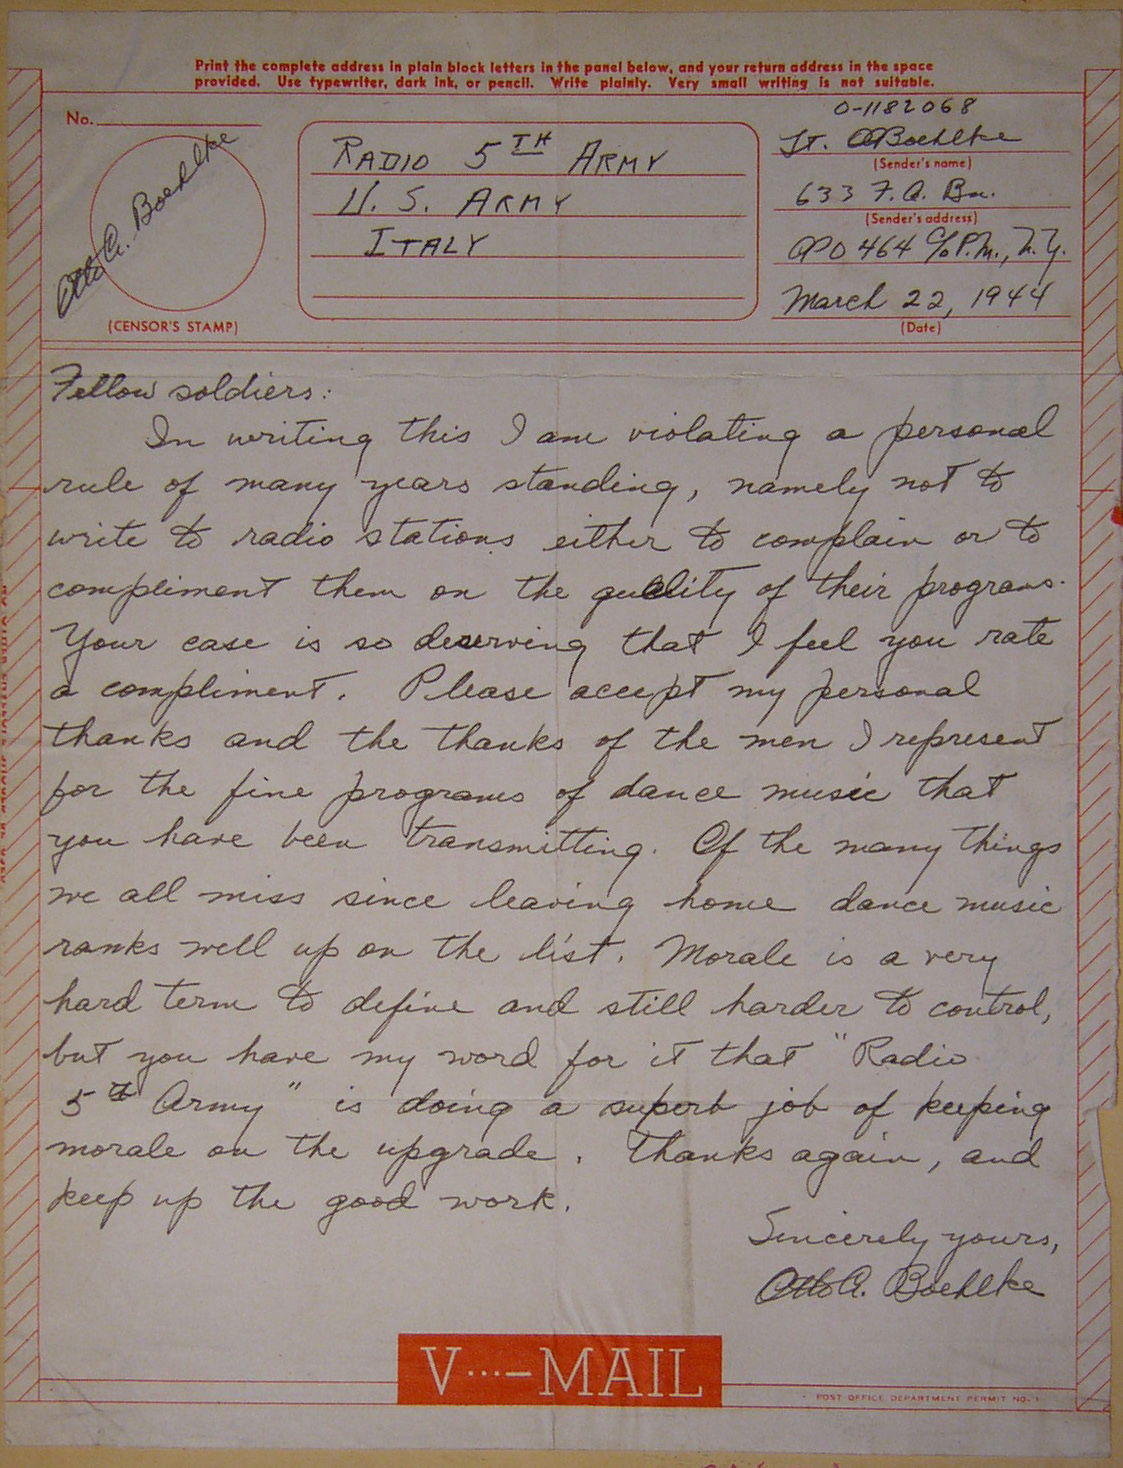 Print the complete address in plain block letters in the panel below, and your return address in the space
provided. Use typewriter, dark ink, or pencil. Write plainly. Very small writing is not suitable.
No.
Otto A. Boehlke
(CENSOR'S STAMP)
RADIO 5TH ARMY
U. S. ARMY
ITALY
O-1182068
Lt. O A Boehlke
(Sender's name)
633 F. A. Bn.
(Sender's address)
APO 464 c/o P.M., N.Y.
March 22, 1944
(Date)
Fellow soldiers:
In writing this I am violating a personal
rule of many years standing, namely not to
write to radio stations either to complain or to
compliment them on the quality of their programs.
Your case is so deserving that I feel you rate
a compliment. Please accept my personal
thanks and the thanks of the men I represent
for the fine programs of dance music that
you have been transmitting. Of the many things
we all miss since leaving home dance music
ranks well up on the list. Morale is a very
hard term to define and still harder to control,
but you have my word for it that "Radio
5th Army" is doing a superb job of keeping
morale on the upgrade. Thanks again, and
keep up the good work.
Sincerely yours,
Otto A. Boehlke
V···–MAIL
POST OFFICE DEPARTMENT PERMIT NO. 1